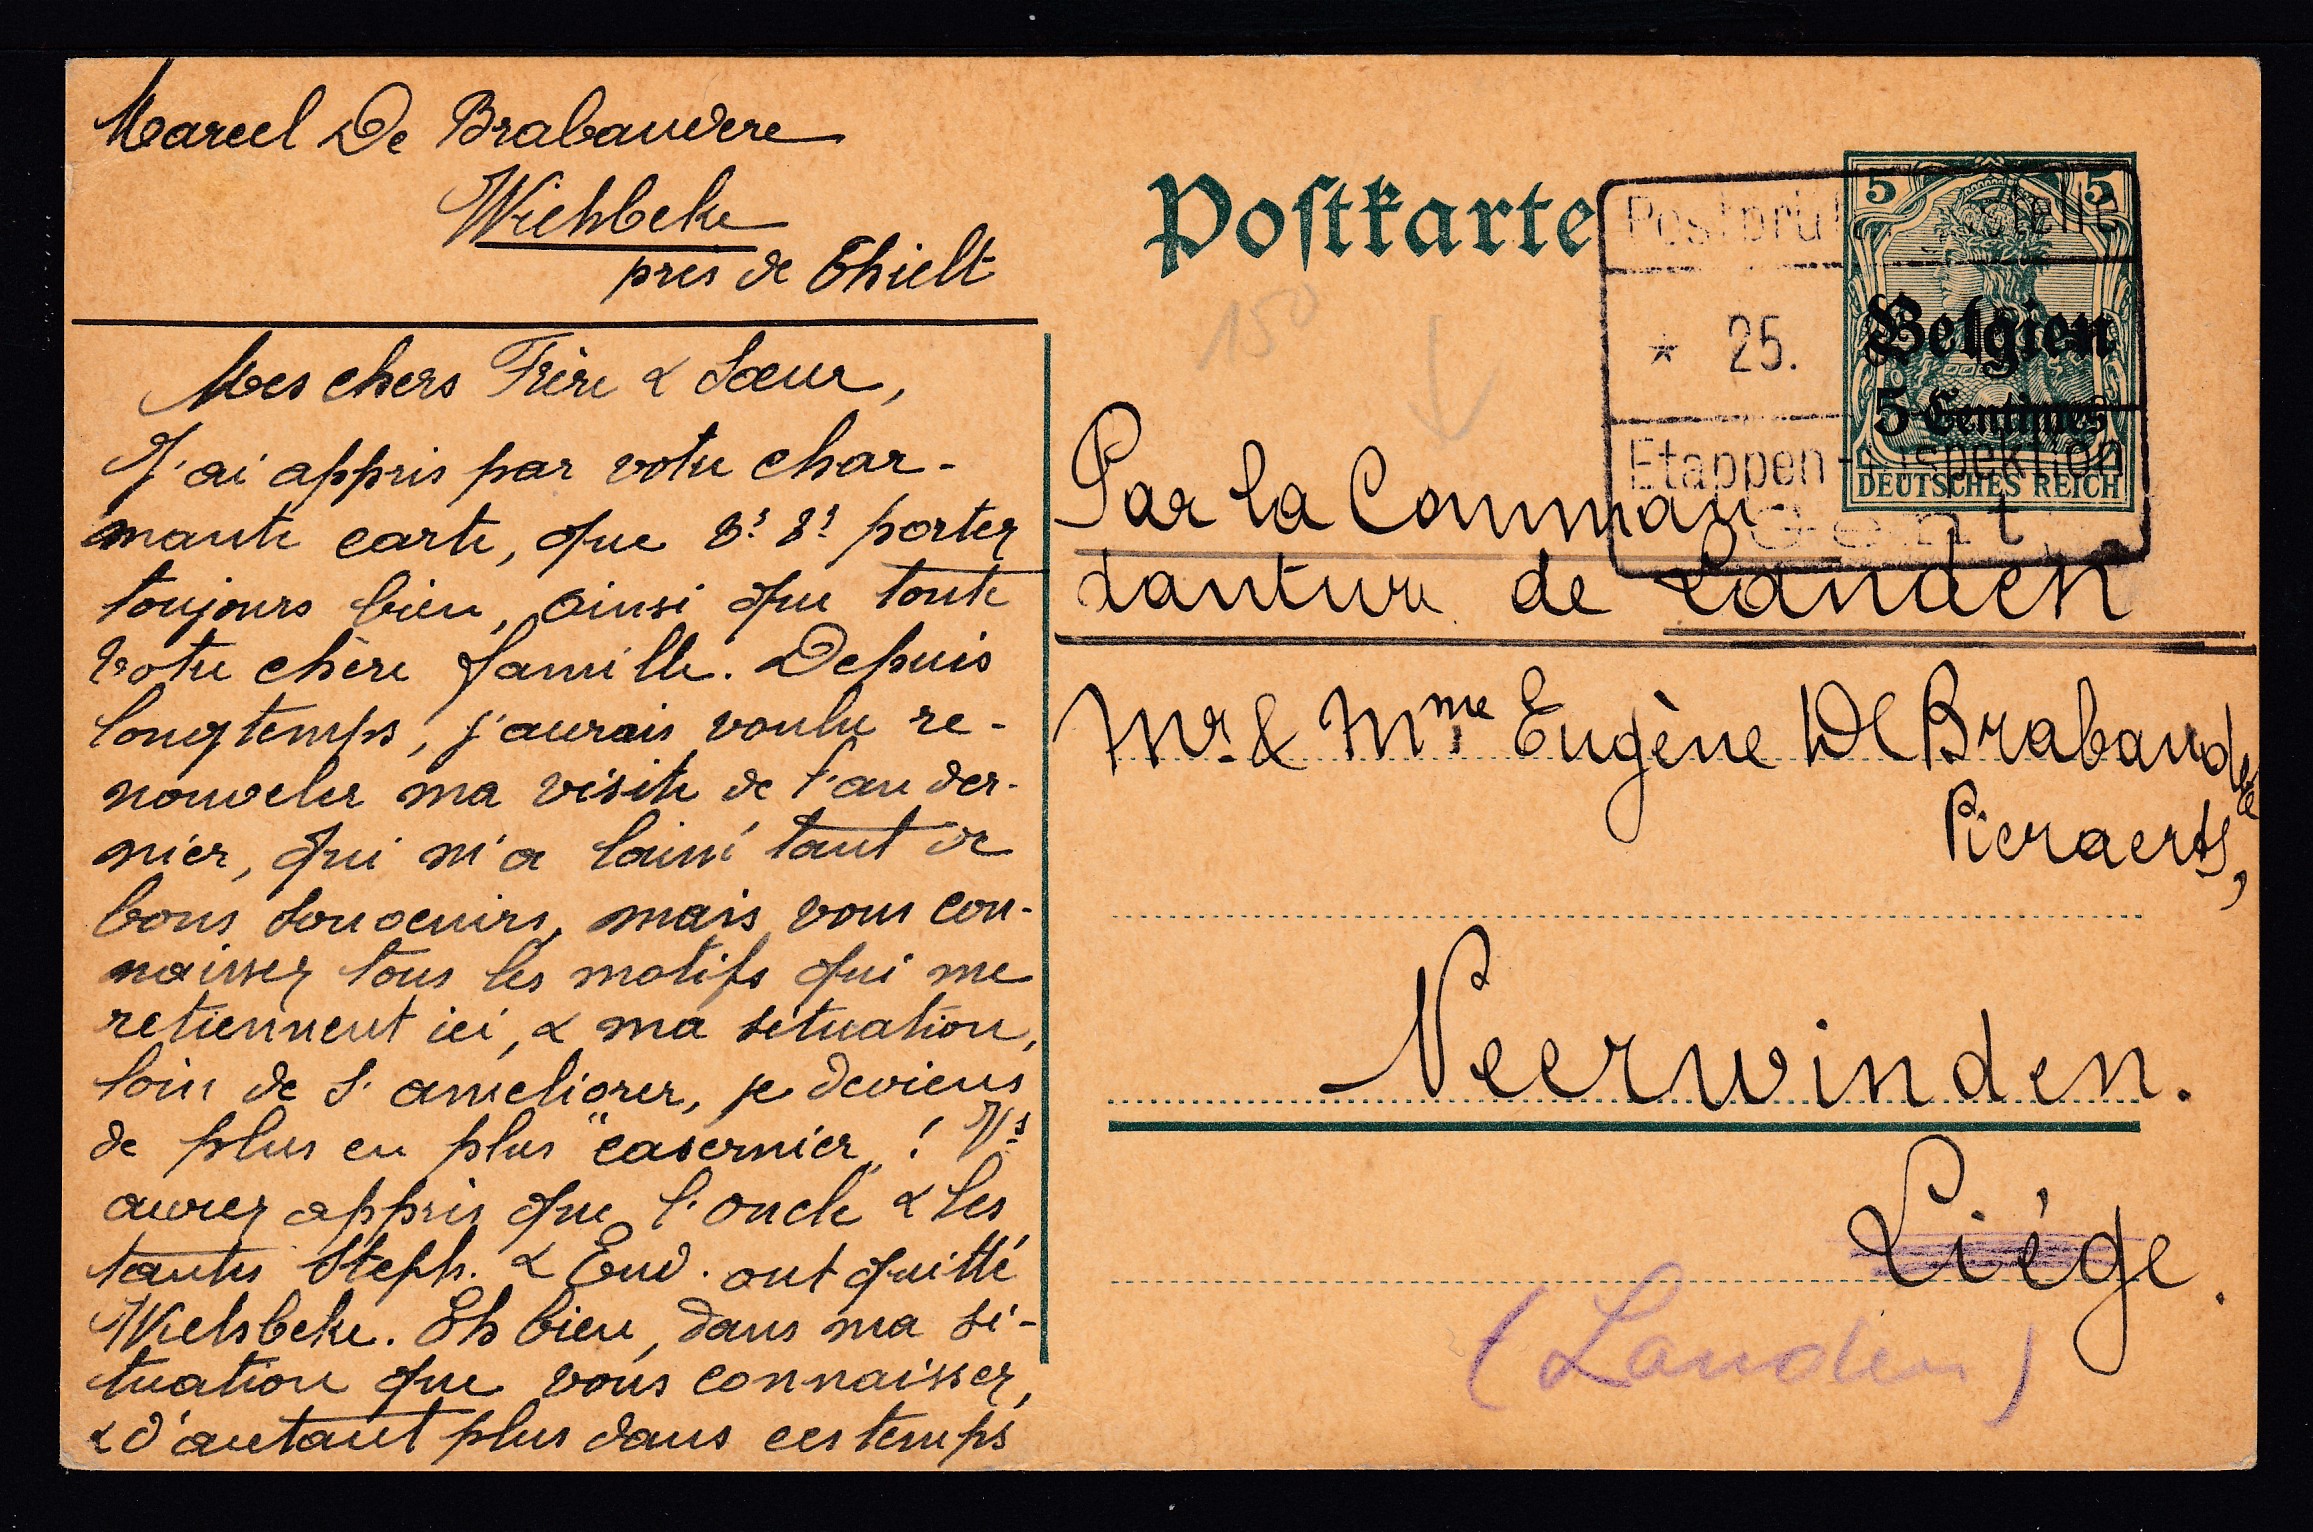 Marcel De Brabandere
Wielsbeke
près de Thielt
Mes chers Frère & Sœur,
J'ai appris par votre char-
mante carte, que vs vs portez
toujours bien, ainsi que toute
votre chère famille. Depuis
longtemps, j'aurais voulu re-
nouveler ma visite de l'an der-
nier, qui m'a laissé tant de
bons souvenirs, mais vous con-
naissez tous les motifs qui me
retiennent ici, & ma situation,
loin de s'améliorer, je deviens
de plus en plus "casernier"! Vs
aurez appris que l'oncle & les
tantes Steph. & Eud. ont quitté
Wielsbeke. Eh bien, dans ma si-
tuation que vous connaissez,
& d'autant plus dans ces temps
Postkarte
5 5
Belgien
5 Centimes
DEUTSCHES REICH
* 25.
Etappen-Inspektion
Gent
150
Par la Comman
danture de Landen
Mr. & Mme Eugène De Brabandere
Pieraerts,
Neerwinden.
Liége.
(Landen)